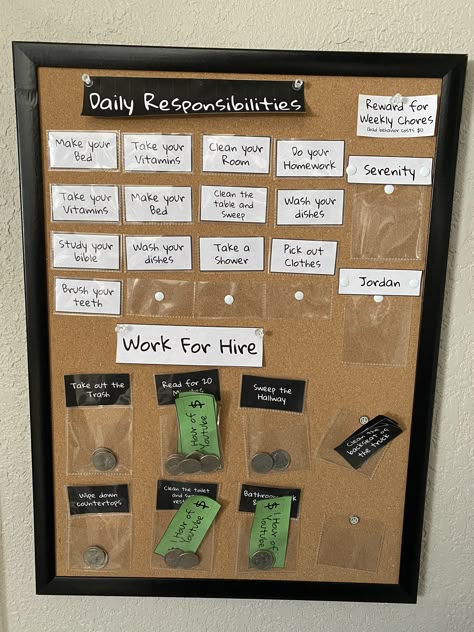 Daily Responsibilities
Reward for
Weekly Chores
Make your
Bed
Take your
Vitamins
Clean your
Room
Do your
Homework
Serenity
Take your
Vitamins
Make your
Bed
Clean the
table and
Sweep
Wash your
dishes
Study your
bible
Wash your
dishes
Take a
Shower
Pick out
Clothes
Jordan
Brush your
teeth
Work For Hire
Take out the
Trash
Read for 20
$
1 Hour of
Youtube
Sweep the
Hallway
Clean the
backseat of
the truck
Wipe down
countertops
Clean the toilet
and
$
1 Hour of
Youtube
$
1 Hour of
Youtube